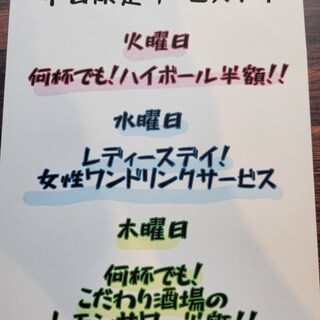 火曜日
何杯でも!ハイボール半額!!
水曜日
レディースデイ!
女性ワンドリンクサービス
木曜日
何杯でも!
こだわり酒場の
レモンサワー半額!!